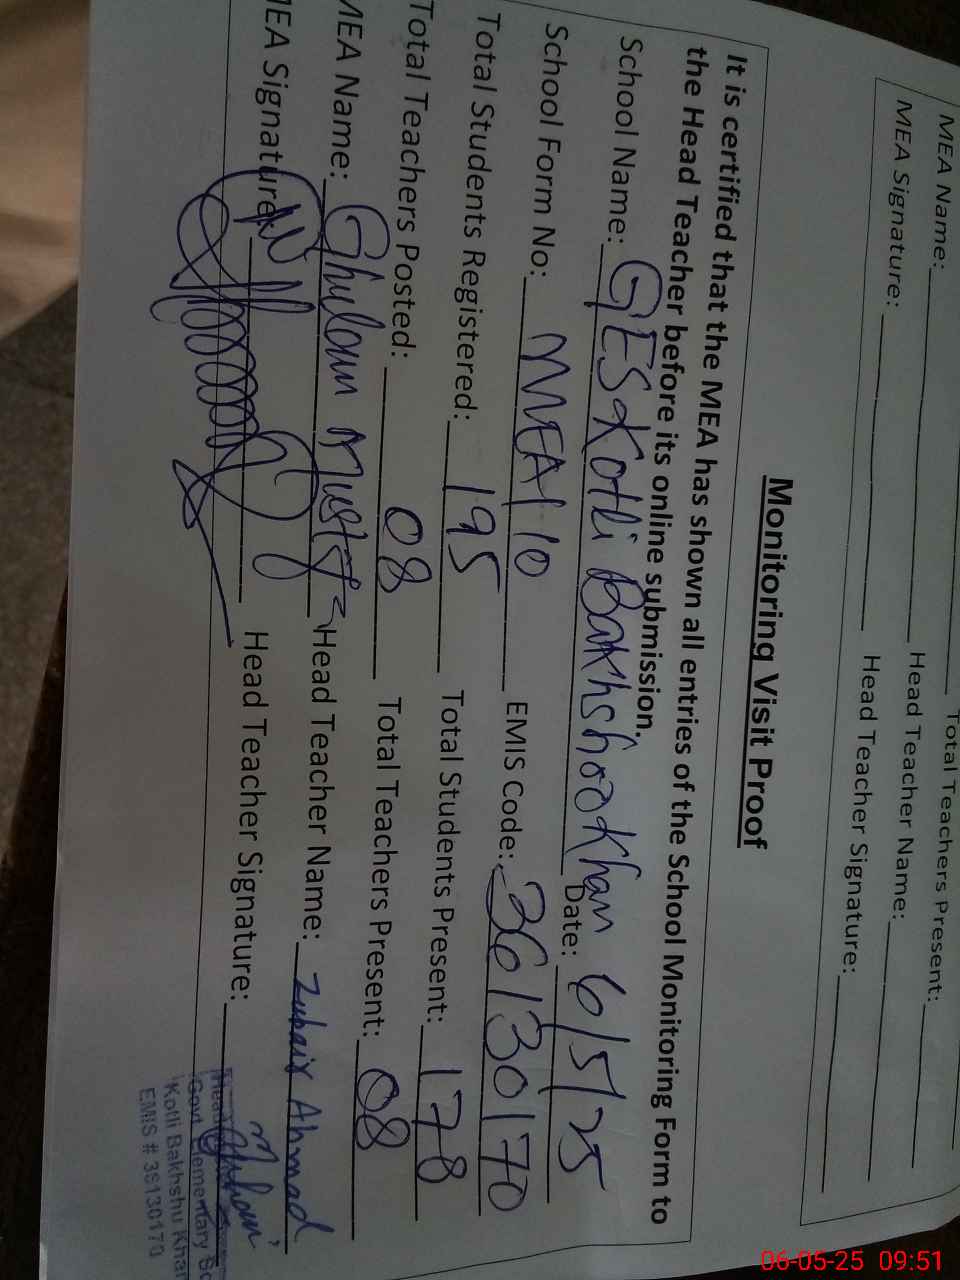 MEA Name: Total Teachers Present:
Head Teacher Name:
MEA Signature: Head Teacher Signature:
Monitoring Visit Proof
It is certified that the MEA has shown all entries of the School Monitoring Form to
the Head Teacher before its online submission.
School Name: GES Kotli Bakhshoo Khan Date: 6/5/25
School Form No: MEA/10 EMIS Code: 36130170
Total Students Registered: 195 Total Students Present: 178
Total Teachers Posted: 08 Total Teachers Present: 08
MEA Name: Ghulam Mustafa Head Teacher Name: Zubair Ahmad
MEA Signature: Head Teacher Signature:
Head
Govt. Elementary Sc
Kotli Bakhshu Khan
EMIS # 36130170
06-05-25 09:51